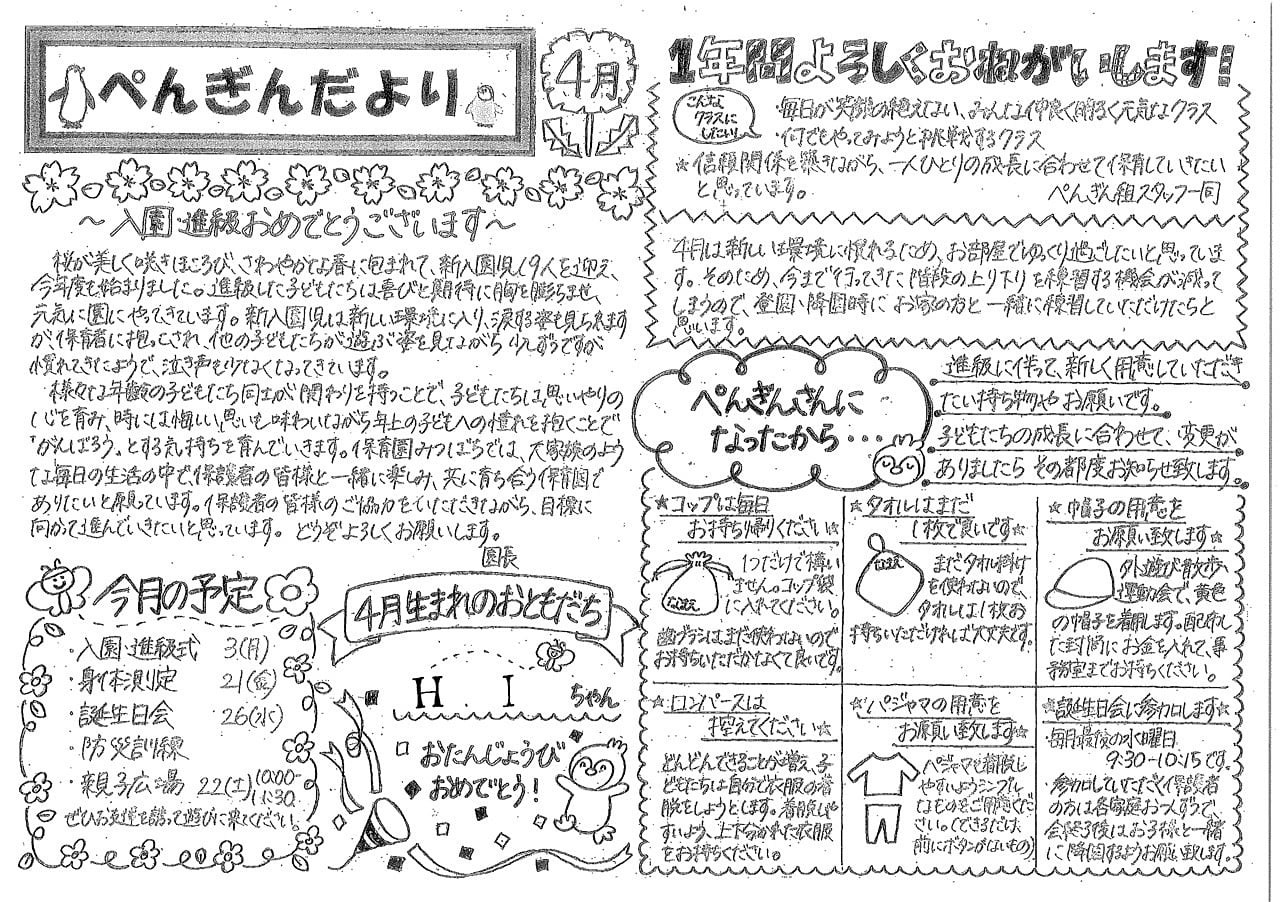 ぺんぎんだより
4月
～入園・進級おめでとうございます～
桜が美しく咲きほころび、さわやかな春に包まれて、新入園児19人を迎え、
今年度も始まりました。進級した子どもたちは喜びと期待に胸を膨らませ、
元気に園にやってきています。新入園児は新しい環境に入り、涙する姿も見られます
が、保育者に抱っこされ、他の子どもたちが遊ぶ姿を見ながら少しずつですが
慣れてきたようで、泣き声も少なくなってきています。
様々な年齢の子どもたち同士が関わりを持つことで、子どもたちは思いやりの
心を育み、時には悔しい思いも味わいながら年上の子どもへの憧れを抱くことで
"がんばろう"とする気持ちを育んでいきます。保育園みつばちでは、大家族のよう
な毎日の生活の中で、保護者の皆様と一緒に楽しみ、共に育ち合う保育園で
ありたいと願っています。保護者の皆様のご協力をいただきながら、目標に
向かって進んでいきたいと思っています。どうぞよろしくお願いします。
園長
今月の予定
・入園・進級式 3(月)
・身体測定 21(金)
・誕生日会 26(水)
・防災訓練
・親子広場 22(土) 10:00-11:30
ぜひお友達を誘って遊びに来てください。
4月生まれのおともだち
H. I ちゃん
おたんじょうび
おめでとう!
1年間よろしくおねがいします!
こんな
クラスに
したい!!
・毎日が笑顔の絶えない、みんな仲良く明るく元気なクラス
・何でもやってみようと挑戦するクラス
☆信頼関係を築きながら、一人ひとりの成長に合わせて保育していきたい
と思っています。 ぺんぎん組スタッフ一同
4月は新しい環境に慣れるため、お部屋でゆっくり過ごしたいと思っていま
す。そのため、今まで行ってきた階段の上り下りを練習する機会が減って
しまうので、登園・降園時にお家の方と一緒に練習していただけたらと
思います。
ぺんぎんさんに
なったから・・・
進級に伴って、新しく用意していただき
たい持ち物やお願いです。
子どもたちの成長に合わせて、変更が
ありましたらその都度お知らせ致します。
☆コップは毎日
お持ち帰りください☆
なまえ
1つだけで構い
ません。コップ袋
に入れてください。
歯ブラシはまだ使わないので
お持ちいただかなくて良いです。
☆タオルはまだ
1枚で良いです☆
なまえ
まだタオル掛け
を使わないので、
タオルは1枚お
持ちいただければ大丈夫です。
☆帽子の用意を
お願い致します☆
外遊び散歩、
運動会で、黄色
の帽子を着用します。配布し
た封筒にお金を入れて、事
務室までお持ちください。
☆ロンパースは
控えてください☆
どんどんできることが増え、子
どもたちは自分で衣服の着
脱をしようとします。着脱しや
すいよう、上下分かれた衣服
をお持ちください。
☆パジャマの用意を
お願い致します☆
パジャマも着脱し
やすいようシンプル
なものをご用意くだ
さい。(できるだけ、
前にボタンがないもの)
☆誕生日会に参加します☆
・毎月最後の水曜日
9:30-10:15です。
・参加していただく保護者
の方は各家庭お一人ずつで、
会終了後はお子様と一緒
に降園するようお願い致します。